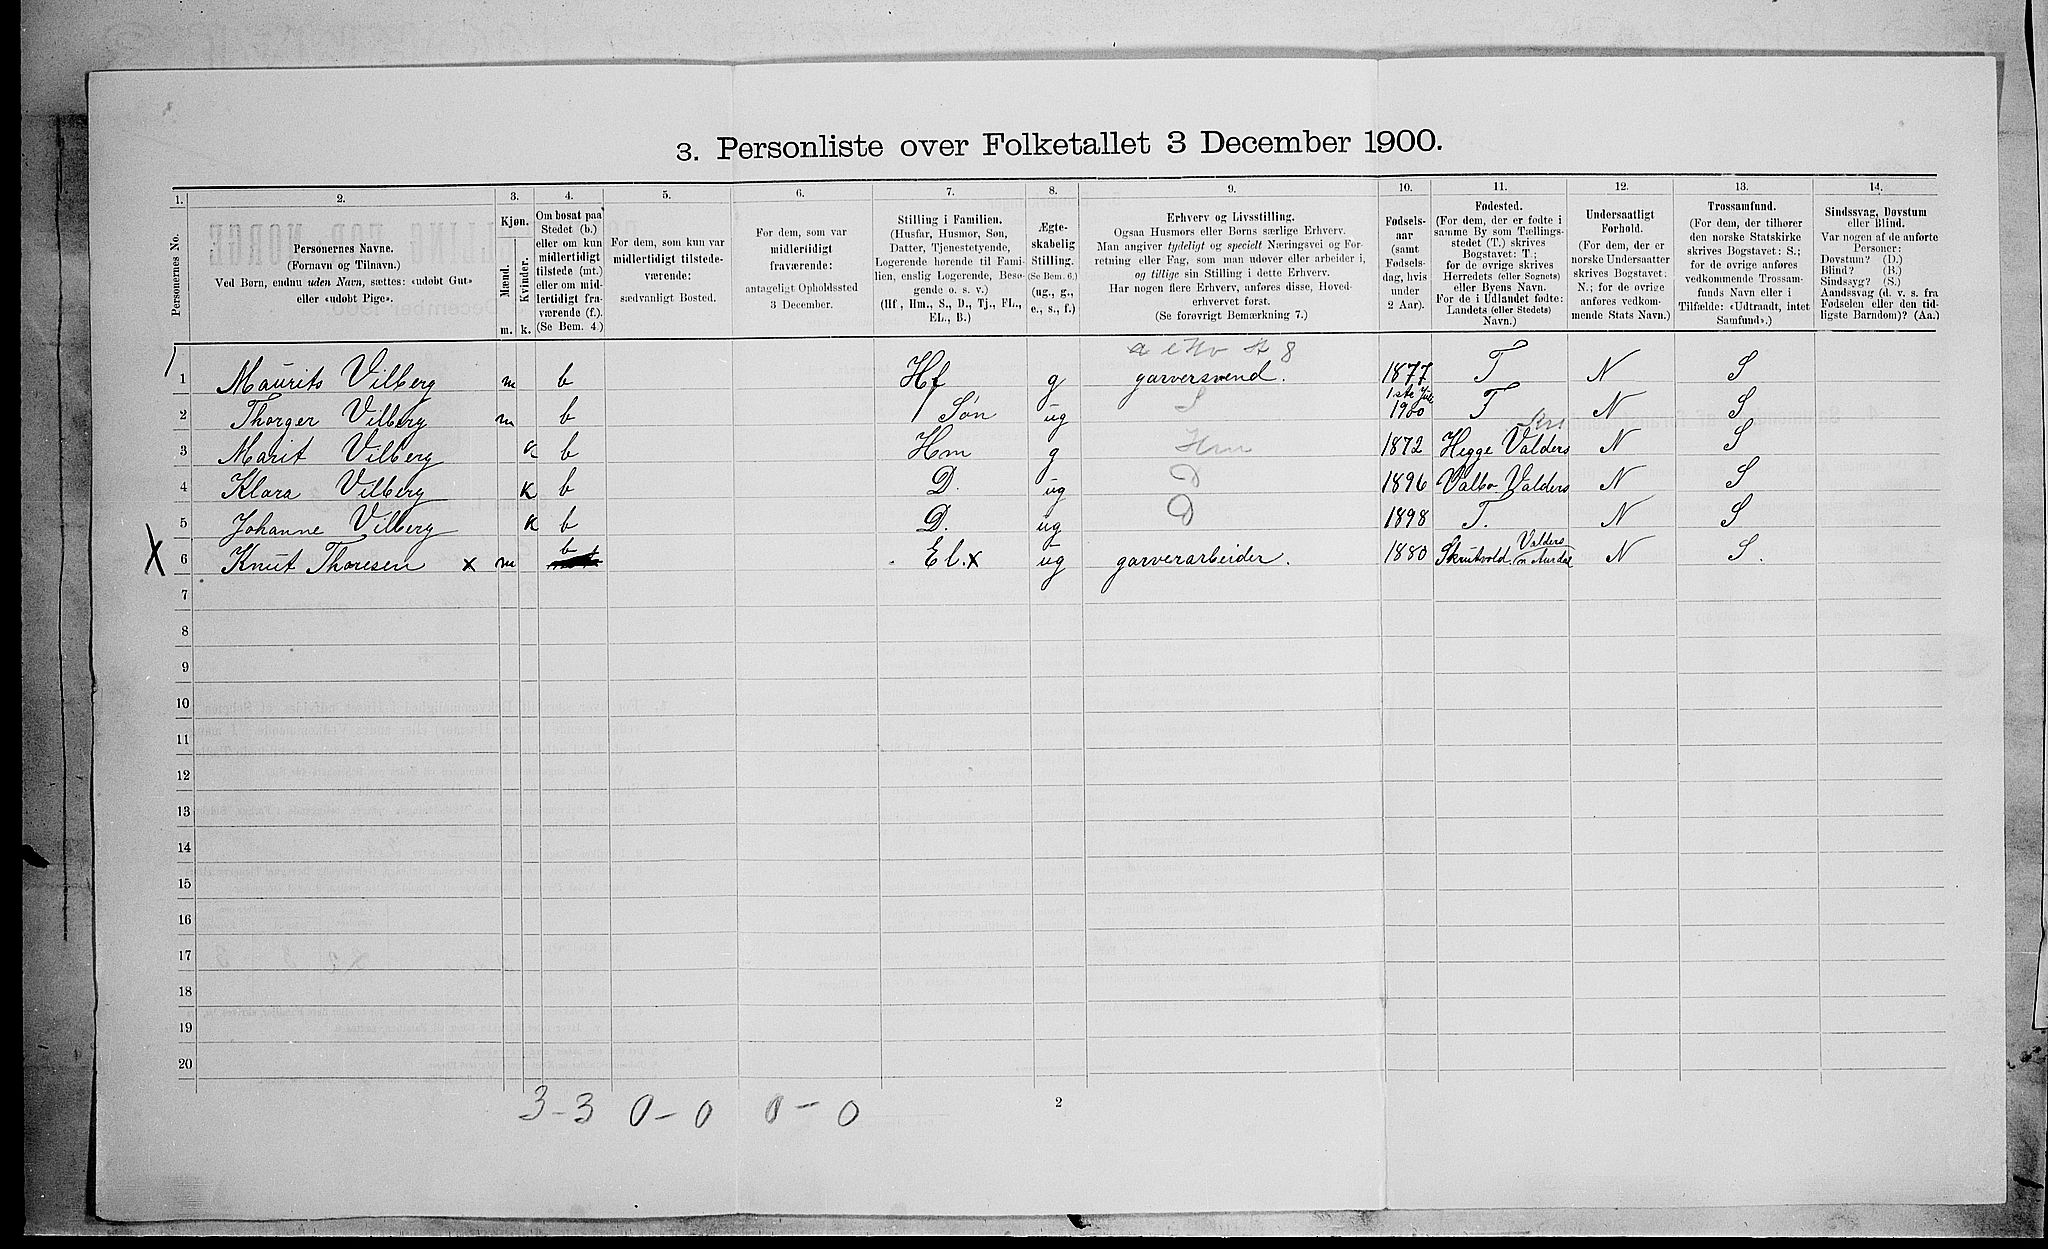 3. Personliste over Folketallet 3 December 1900.
1. 2. 3. 4. 5. 6. 7. 8. 9. 10. 11. 12. 13. 14.
Personernes No.
Personernes Navne.
(Fornavn og Tilnavn.)
Ved Børn, endnu uden Navn, sættes: «udøbt Gut»
eller «udøbt Pige».
Kjøn.
Mænd. Kvinder.
m. k.
Om bosat paa
Stedet (b.)
eller om kun
midlertidigt
tilstede (mt.)
eller om mid-
lertidigt fra-
værende (f.).
(Se Bem. 4.)
For dem, som kun var
midlertidigt tilstede-
værende:
sædvanligt Bosted.
For dem, som var
midlertidigt
fraværende:
antageligt Opholdssted
3 December.
Stilling i Familien.
(Husfar, Husmor, Søn,
Datter, Tjenestetyende,
Logerende hørende til Fami-
lien, enslig Logerende, Besø-
gende o. s. v.)
(Hf., Hm., S., D., Tj., FL.,
EL., B.)
Ægte-
skabelig
Stilling.
(Se Bem. 6.)
(ug., g.,
e., s., f.)
Erhverv og Livsstilling.
Ogsaa Husmors eller Børns særlige Erhverv.
Man angiver tydeligt og specielt Næringsvei og For-
retning eller Fag, som man udøver eller arbeider i,
og tillige sin Stilling i dette Erhverv.
Har nogen flere Erhverv, anføres disse, Hoved-
erhvervet først.
(Se forøvrigt Bemærkning 7.)
Fødsels-
aar
(samt
Fødsels-
dag, hvis
under
2 Aar).
Fødested.
(For dem, der er fødte i
samme By som Tællings-
stedet (T.) skrives
Bogstavet: T.;
for de øvrige skrives
Herredets (eller Sognets)
eller Byens Navn.
For de i Udlandet fødte:
Landets (eller Stedets)
Navn.)
Undersaatligt
Forhold.
(For dem, der er
norske Undersaatter
skrives Bogstavet:
N.; for de øvrige
anføres vedkom-
mende Stats Navn.)
Trossamfund.
(For dem, der tilhører
den norske Statskirke
skrives Bogstavet: S.;
for de øvrige anføres
vedkommende Trossam-
funds Navn eller i
Tilfælde: «Udtraadt, intet
Samfund».)
Sindssvag, Døvstum
eller Blind.
Var nogen af de anførte
Personer:
Døvstum? (D.)
Blind? (B.)
Sindssyg? (S.)
Aandssvag (d. v. s. fra
Fødselen eller den tid-
ligste Barndom)? (Aa.)
1 Maurits Vilberg m b Hf g garversvend. 1877 T N S
2 Thorger Vilberg m b Søn ug S 1ste Juli 1900 T N S
3 Marit Vilberg k b Hm g Hm 1872 Hegge Valders N S
4 Klara Vilberg K b D. ug D 1896 Valbo Valders N S
5 Johanne Vilberg K b D. ug D 1898 T. N S
X 6 Knut Thoresen x m b El. x ug garverarbeider. 1880 Skrutvold Valders n Aurdal N S.
7
8
9
10
11
12
13
14
15
16
17
18
19
20
3-3 0-0 0-0
2